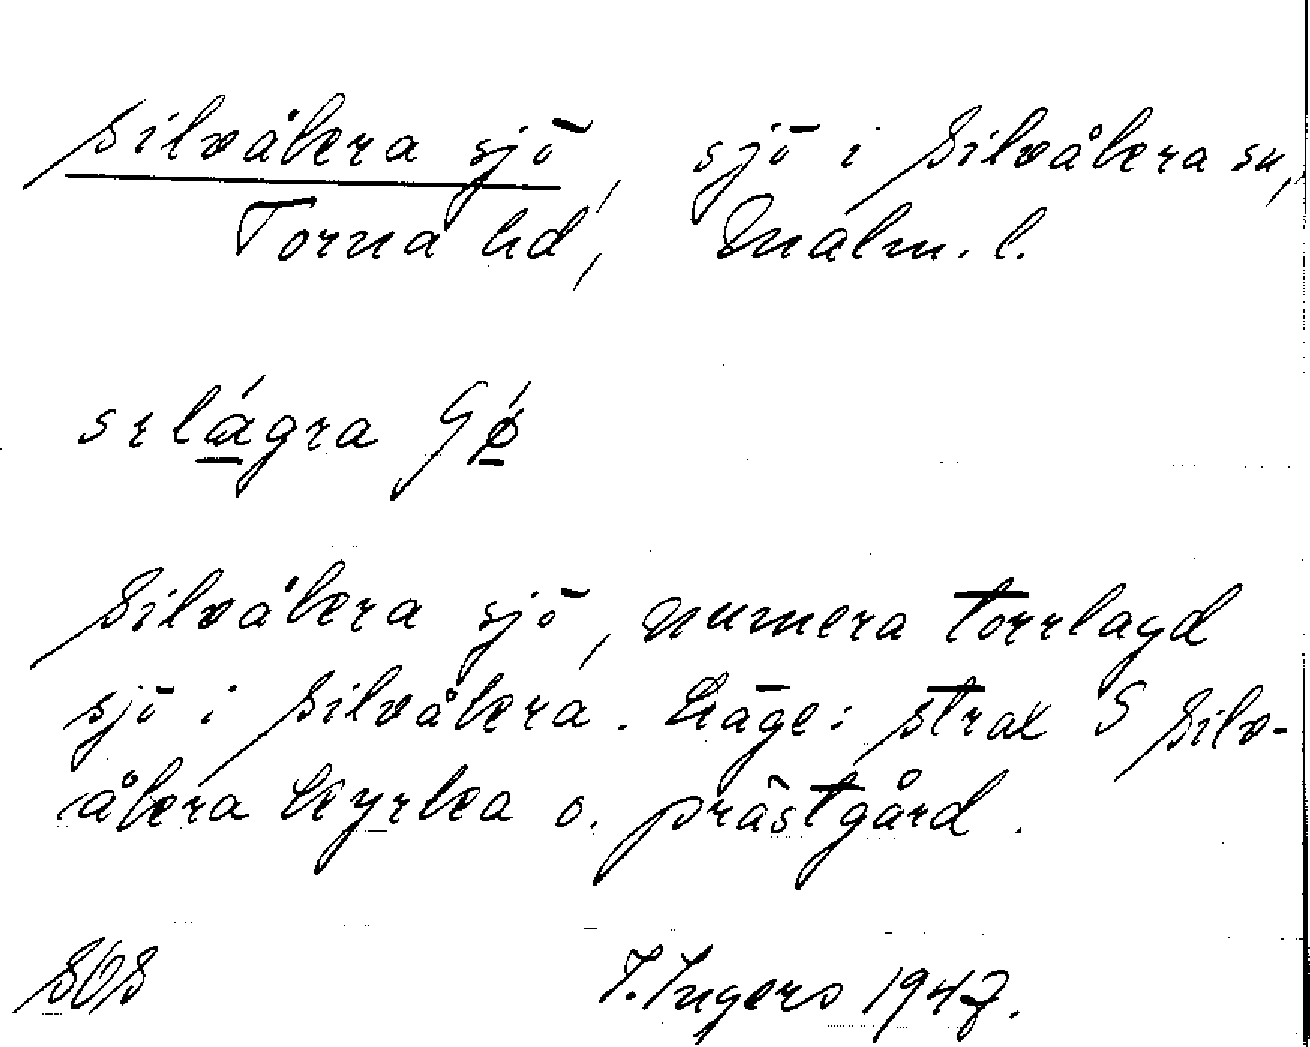 Silvåkra sjö, sjö i Silvåkra sn,
Torna hd, Malm. l.
sɪlágra
Silvåkra sjö, numera torrlagd
sjö i Silvåkra. Läge: strax S Silv-
åkra kyrka o. prästgård.
SOS I. Ingers 1947.